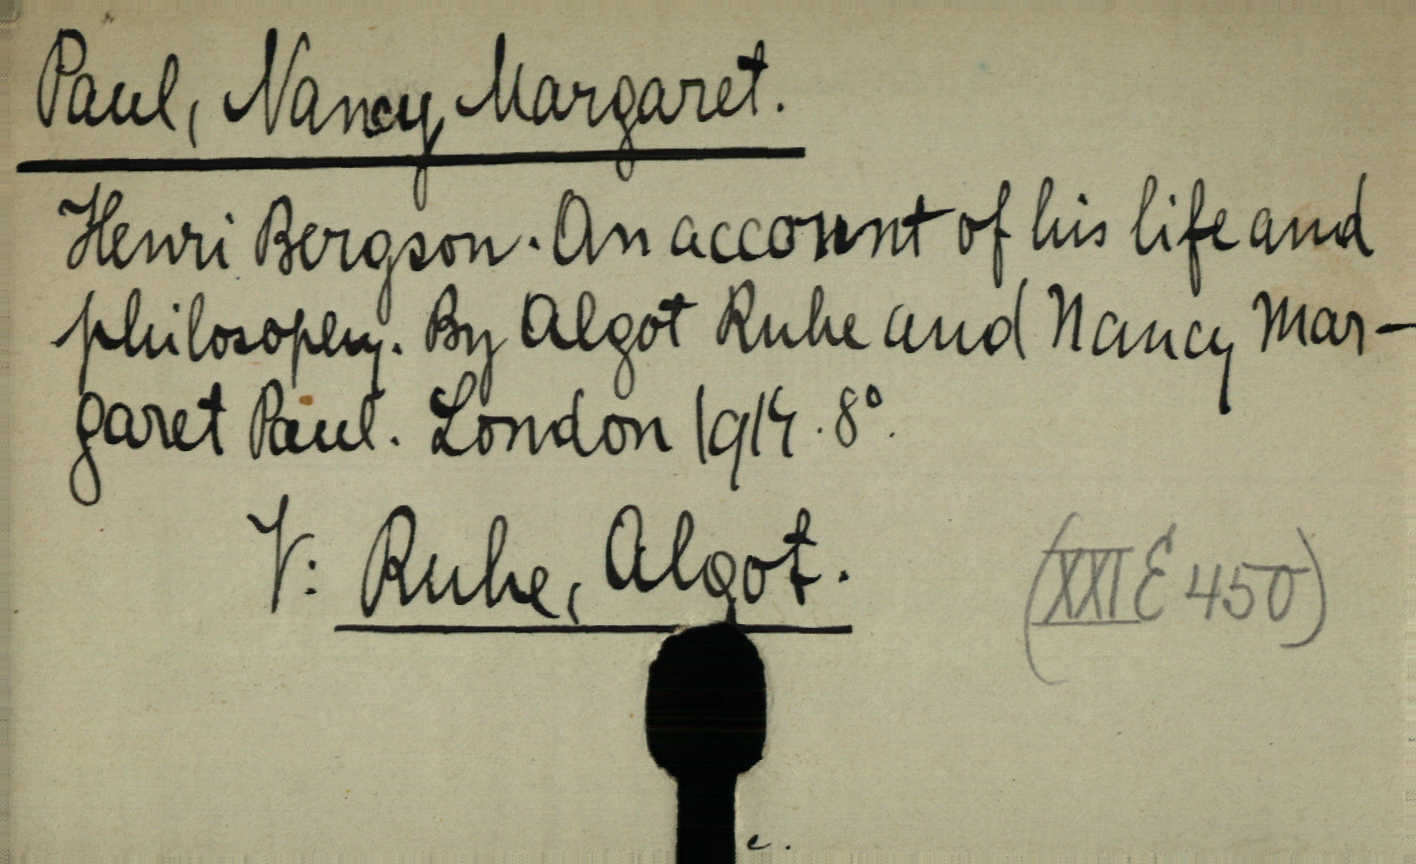 Paul, Nancy Margaret.
Henri Bergson. An account of his life and
philosophy. By Algot Ruhe and Nancy Mar-
garet Paul. London 1914. 8°.
V: Ruhe, Algot.
(XXI E 450)
c.